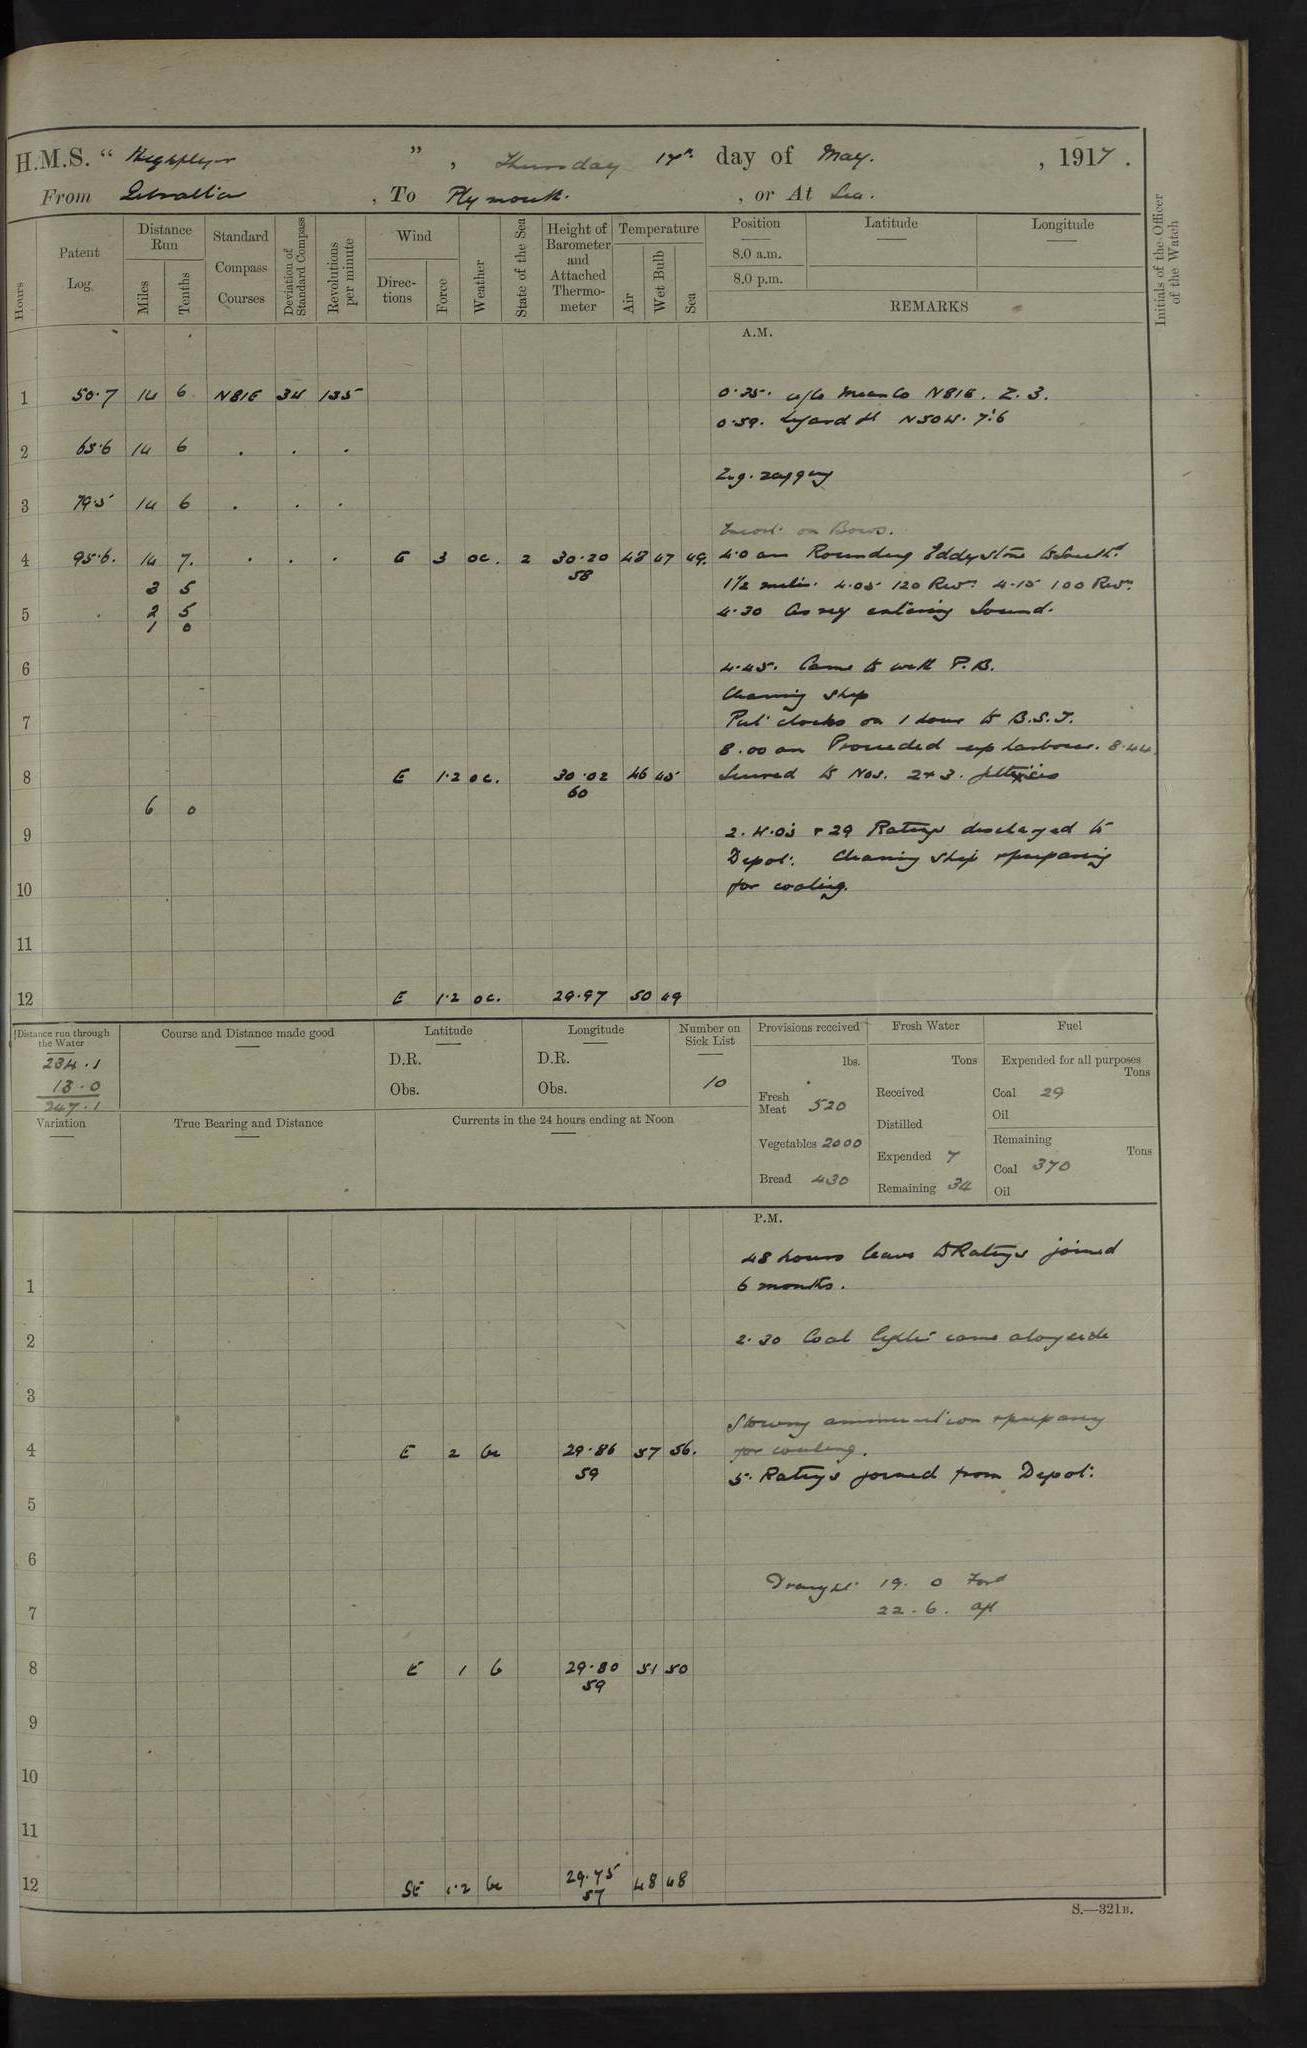 H.M.S. " Highflyer " , Thursday 17th day of May. , 1917.
From Gibraltar , To Plymouth. , or At Sea.
Hours
Patent Log.
Distance Run
Miles
Tenths
Standard Compass Courses
Deviation of Standard Compass
Revolutions per minute
Wind
Directions
Force
Weather
State of the Sea
Height of Barometer and Attached Thermometer
Temperature
Air
Wet Bulb
Sea
Position
8.0 a.m.
8.0 p.m.
Latitude
Longitude
REMARKS
Initials of the Officer of the Watch
A.M.
1 50.7 14 6 N81E 34 135 0.35. a/c Mean Co N81E. Z. 3.
0.59. Lizard Lt N50W. 7'.6
2 65.6 14 6 . . .
Zig-zagging
3 79.5 14 6 . . .
Escort on Bows.
4 95.6. 14 7. . . . E 3 oc. 2 30.20 48 47 49. 4.0 am Rounding Eddystone to South'd
58
3 5 1½ miles. 4.05 120 Revs. 4.15 100 Revs.
5 2 5 4.30 entering Sound.
1 0
6 4.45. Came to with P.B.
Cleaning ship
7 Put clocks on 1 hour to B.S.T.
8.00 am Proceeded up harbour. 8.44
8 E 1.2 oc. 30.02 46 45 Secured to Nos. 2 & 3. jetties
60
6 0
9 2. W.O's & 29 Ratings discharged to
Depot. Cleaning ship & preparing
10 for coaling.
11
12 E 1.2 oc. 29.97 50 49
Distance run through the Water
234.1
13.0
247.1
Course and Distance made good
Latitude
D.R.
Obs.
Longitude
D.R.
Obs.
Number on Sick List
10
Provisions received
lbs.
Fresh Meat 520
Vegetables 2000
Bread 430
Fresh Water
Tons
Received
Distilled
Expended 7
Remaining 34
Fuel
Expended for all purposes
Tons
Coal 29
Oil
Remaining
Tons
Coal 370
Oil
Variation
True Bearing and Distance
Currents in the 24 hours ending at Noon
P.M.
48 hours leave to Ratings joined
1 6 months.
2 2.30 Coal lighter came alongside
3
Stowing ammunition & preparing
4 E 2 bc 29.86 57 56. for coaling.
59 5. Ratings joined from Depot.
5
6
Draught 19. 0 For'd
7 22. 6. Aft
8 E 1 b 29.80 51 50
59
9
10
11
12 SE 1.2 bc 29.75 48 48
57
S.—321B.